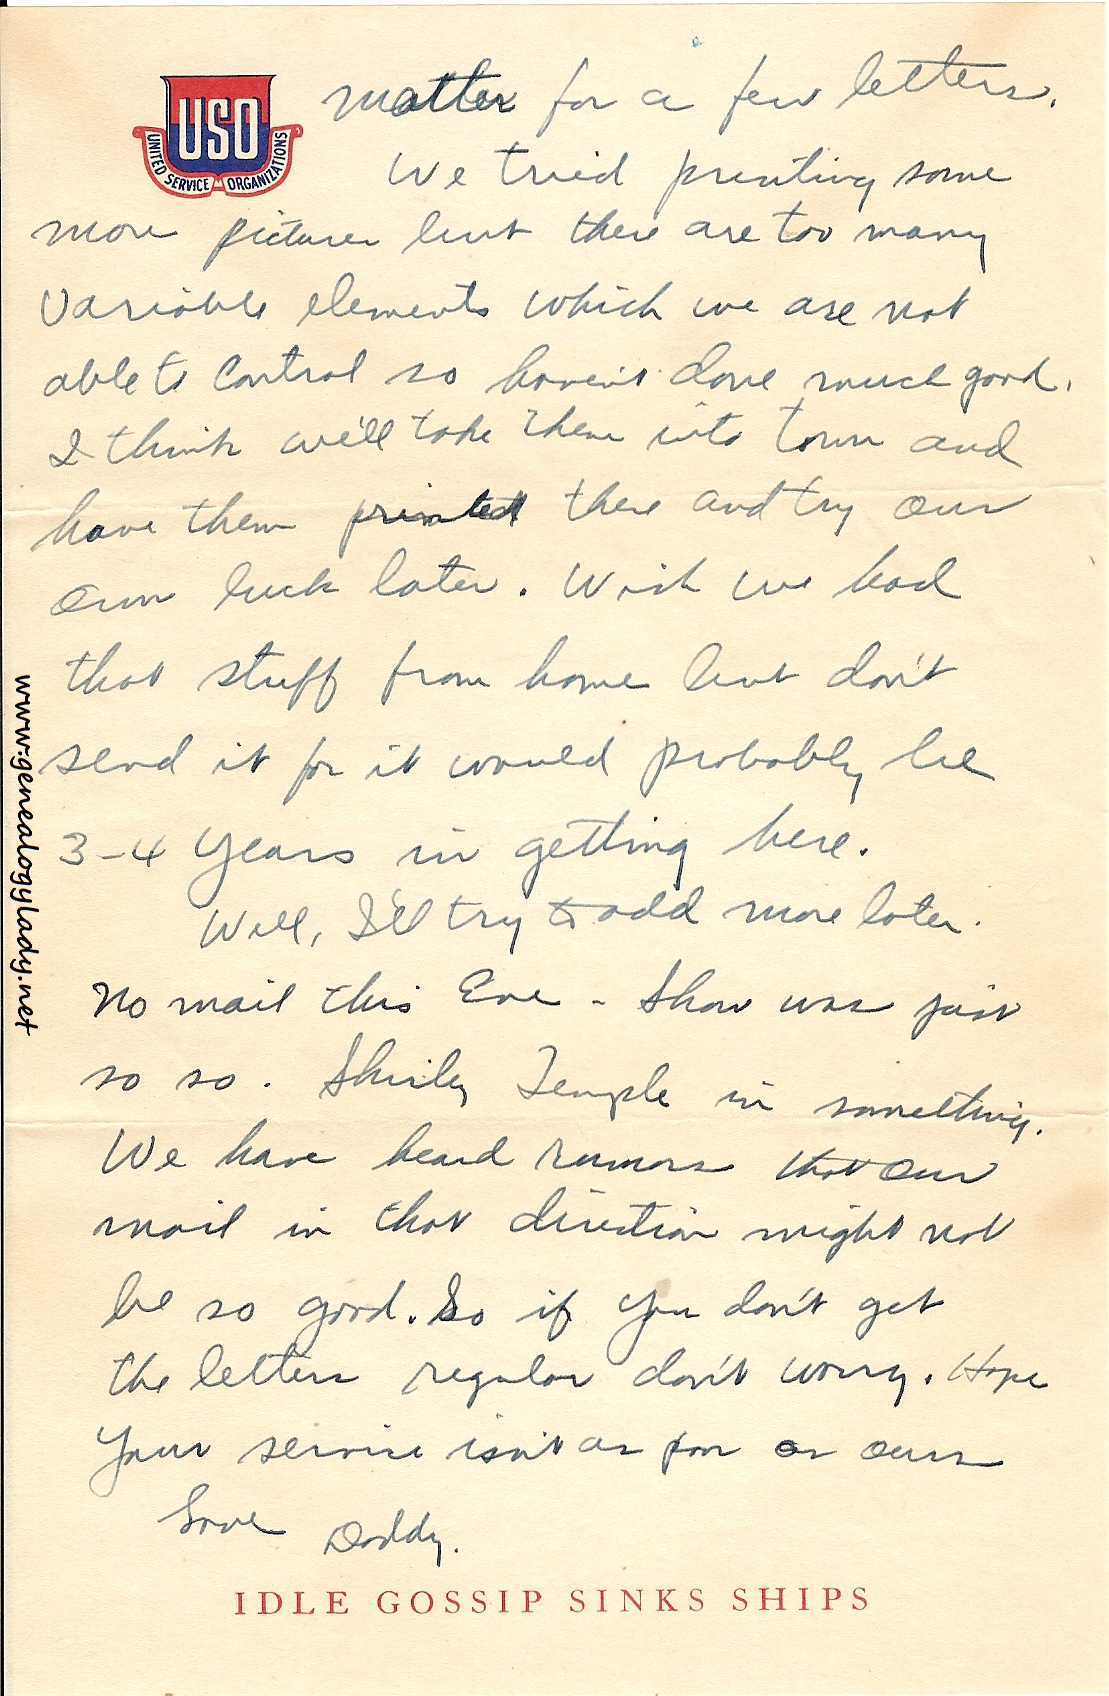 USO
UNITED SERVICE ORGANIZATIONS
matter for a few letters.
We tried printing some
more pictures but there are too many
variable elements which we are not
able to control so haven't done much good.
I think we'll take them into town and
have them printed there and try our
own luck later. Wish we had
that stuff from home but don't
send it for it would probably be
3-4 years in getting here.
Well, I'll try to add more later.
No mail this Eve - Show was just
so so. Shirley Temple in something.
We have heard rumors that our
mail in that direction might not
be so good. So if you don't get
the letters regular don't worry. Hope
your service isn't as poor as ours
Love Daddy.
IDLE GOSSIP SINKS SHIPS
www.genealogylady.net